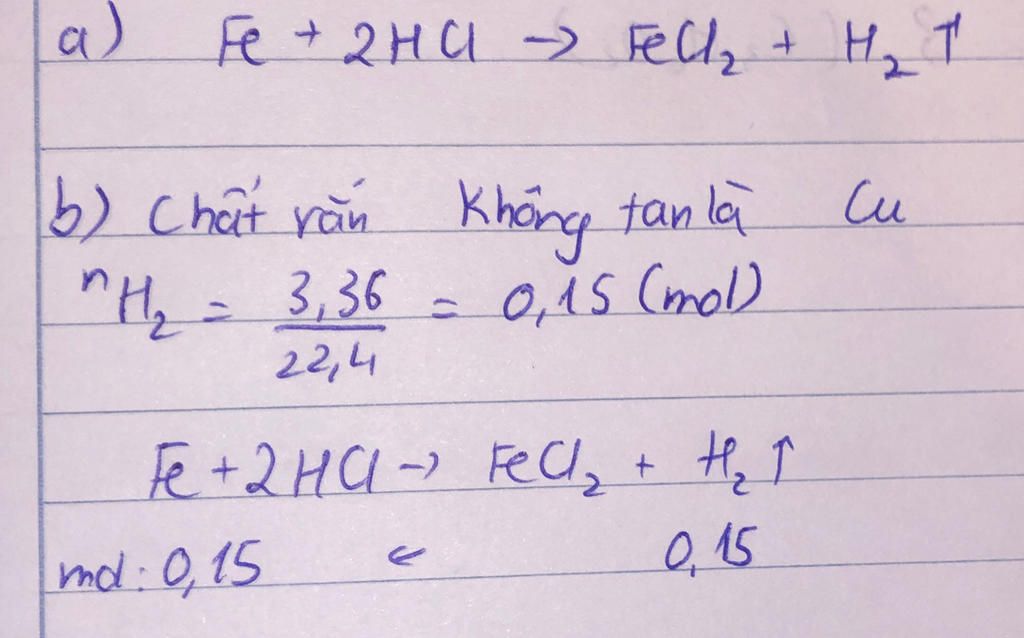 a) Fe + 2HCl → FeCl₂ + H₂ ↑
b) Chất rắn không tan là Cu
nH₂ = 3,36 / 22,4 = 0,15 (mol)
Fe + 2HCl → FeCl₂ + H₂ ↑
mol: 0,15 ← 0,15